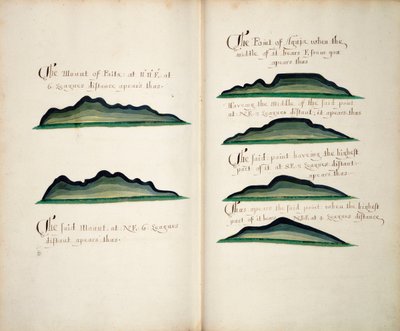 The Mount of Paita at NNE at
6 Leagues distance apears thus.
The said Mount at NE 6 Leagues
distant apears thus.
The Point of when the
middle of it bears E from you
apears thus
Haveing the middle of the said point
at NE distant, it apears thus
The said point haveing the highest
part of it at distant
apears thus.
Thus apears the said point when the highest
part of it bears at 4 Leagues distance